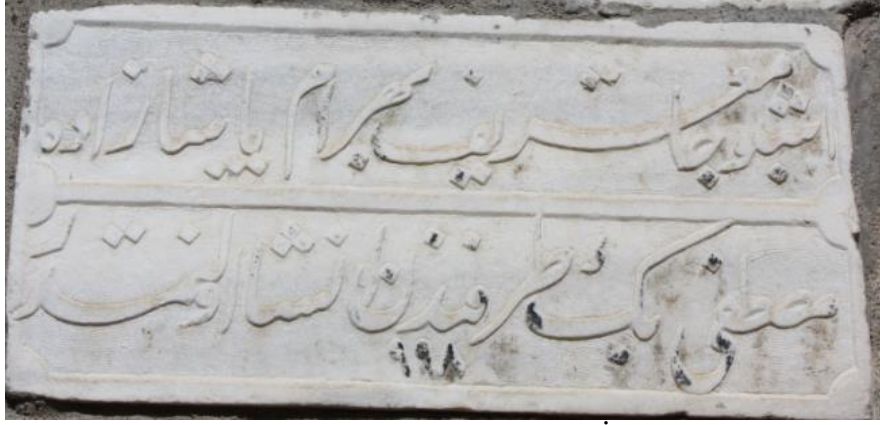 اشبو جامع شريف بهرام پاشا زاده
مصطفى بك طرفندن انشا اولنمشدر
١٩٨